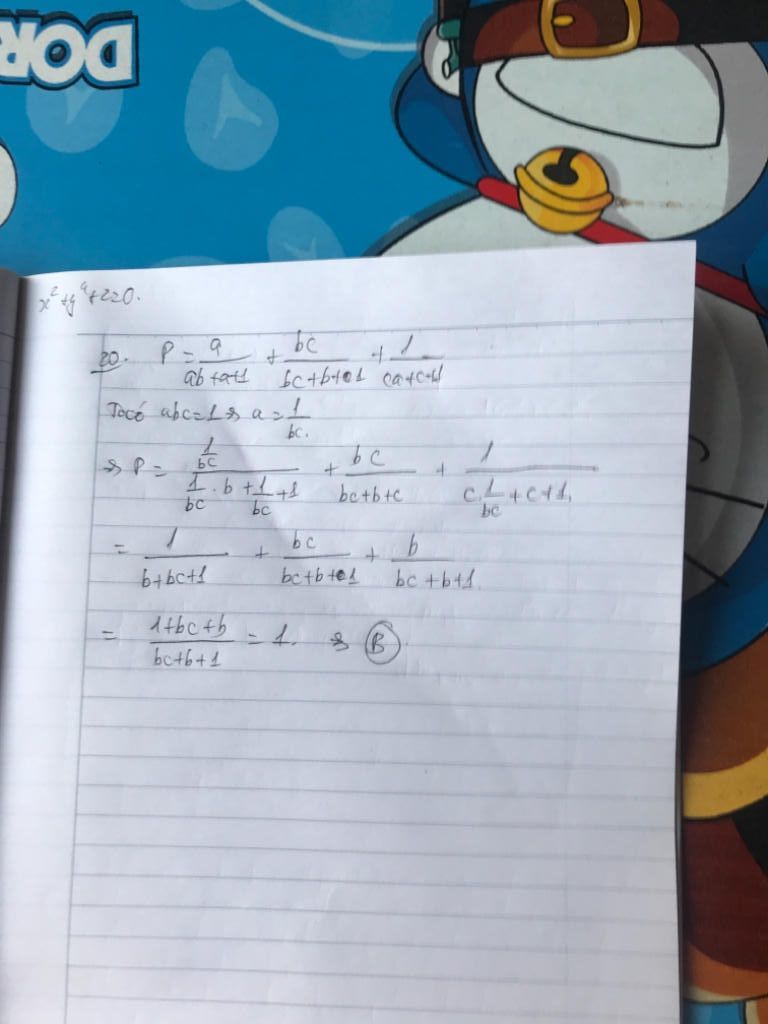 DOR
x² + y² + z ≥ 0.
20. P = a/(ab+a+1) + bc/(bc+b+1) + 1/(ca+c+1)
Ta có abc = 1 ⇒ a = 1/bc.
⇒ P = (1/bc)/(1/bc . b + 1/bc + 1) + bc/(bc+b+c) + 1/(c.1/bc + c + 1)
= 1/(b+bc+1) + bc/(bc+b+1) + b/(bc+b+1)
= (1+bc+b)/(bc+b+1) = 1. ⇒ B